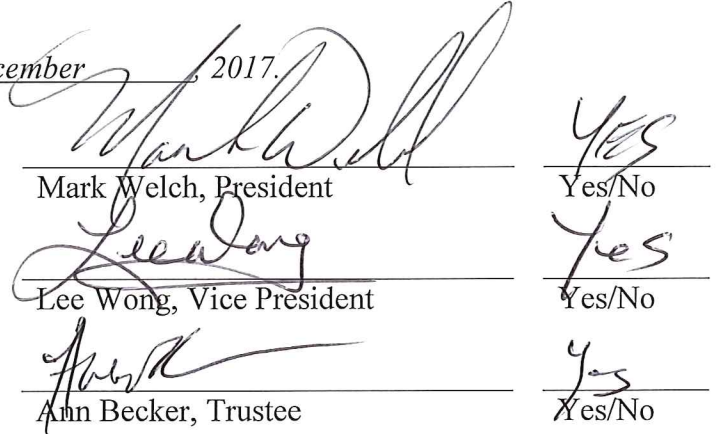 cember, 2017.
Mark Welch YES
Mark Welch, President Yes/No
Lee Wong Yes
Lee Wong, Vice President Yes/No
Yes
Ann Becker, Trustee Yes/No